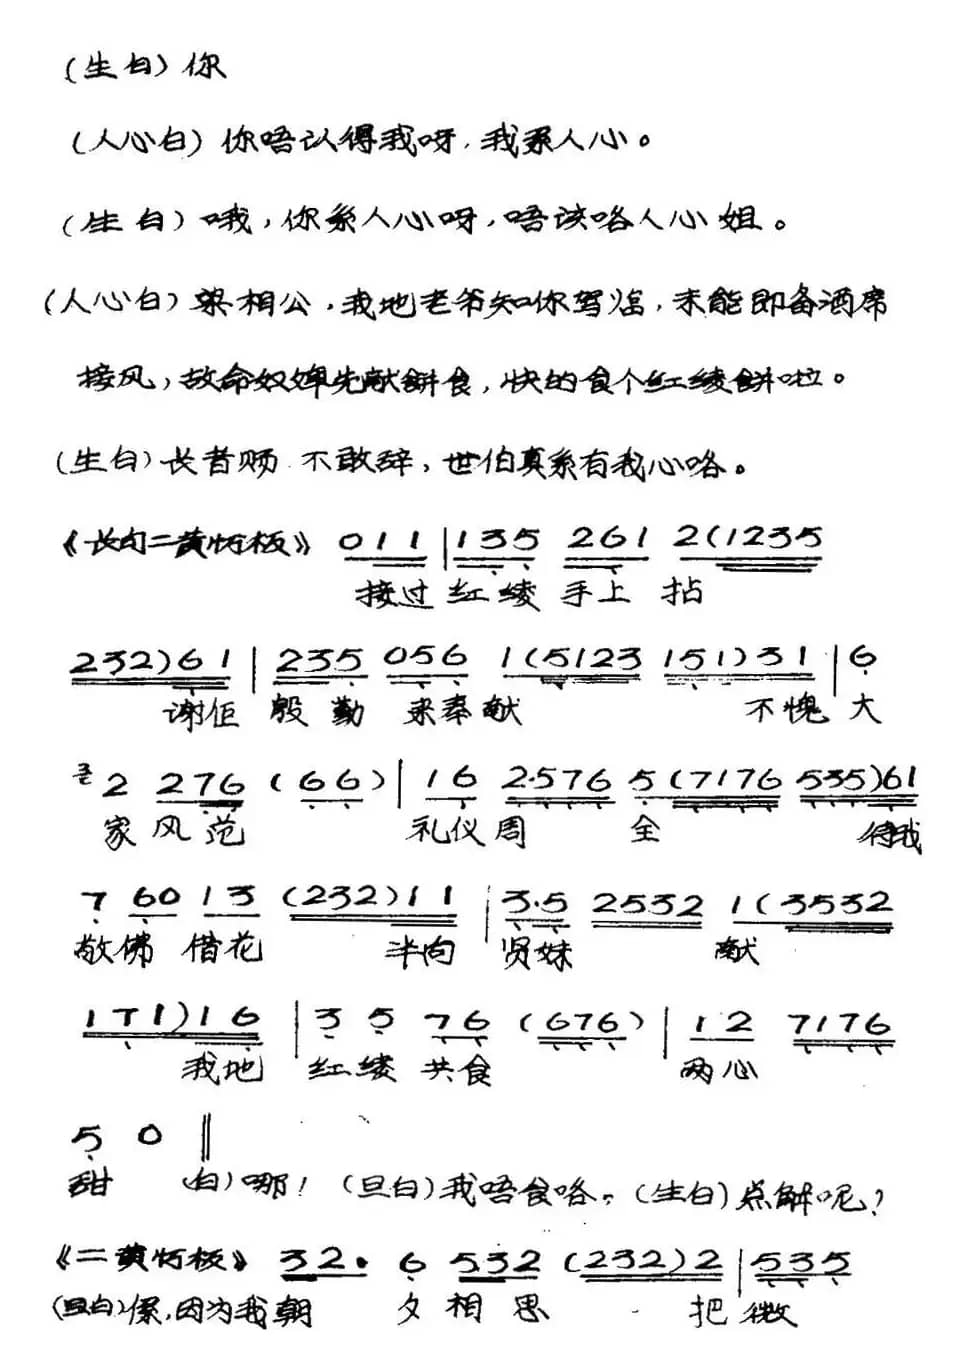 (生白) 你
(人心白) 你唔认得我呀,我系人心。
(生白) 哦,你系人心呀,唔该咯人心姐。
(人心白) 梁相公,我地老爷知你驾临,未能即备酒席
接风,故命奴婢先献餅食,快的食个红绫餅啦。
(生白) 长者赐 不敢辞,世伯真系有我心咯。
《长句二黄慢板》 0 1 1 | 1 3 5 2 6 1 2 (1 2 3 5
接过 红绫 手上 拈
2 3 2) 6 1 | 2 3 5 0 5 6 1 (5 1 2 3 1 5 1) 3 1 | 6
谢佢 殷勤 来奉献 不愧 大
2 2 7 6 (6 6) | 1 6 2·5 7 6 5 (7 1 7 6 5 3 5) 6 1
家风范 礼仪周 全 待我
7 6 0 1 3 (2 3 2) 1 1 | 3·5 2 5 3 2 1 (3 5 3 2
敬佛 借花 半向 贤妹 献
1 7 1) 1 6 | 3 5 7 6 (6 7 6) | 1 2 7 1 7 6
我地 红绫 共食 两心
5 0 ‖
甜 (白) 哪! (旦白) 我唔食咯。(生白) 点解呢?
《二黄慢板》 3 2· 6 5 3 2 (2 3 2) 2 | 5 3 5
(旦白) 系,因为我朝 夕相思 把 微